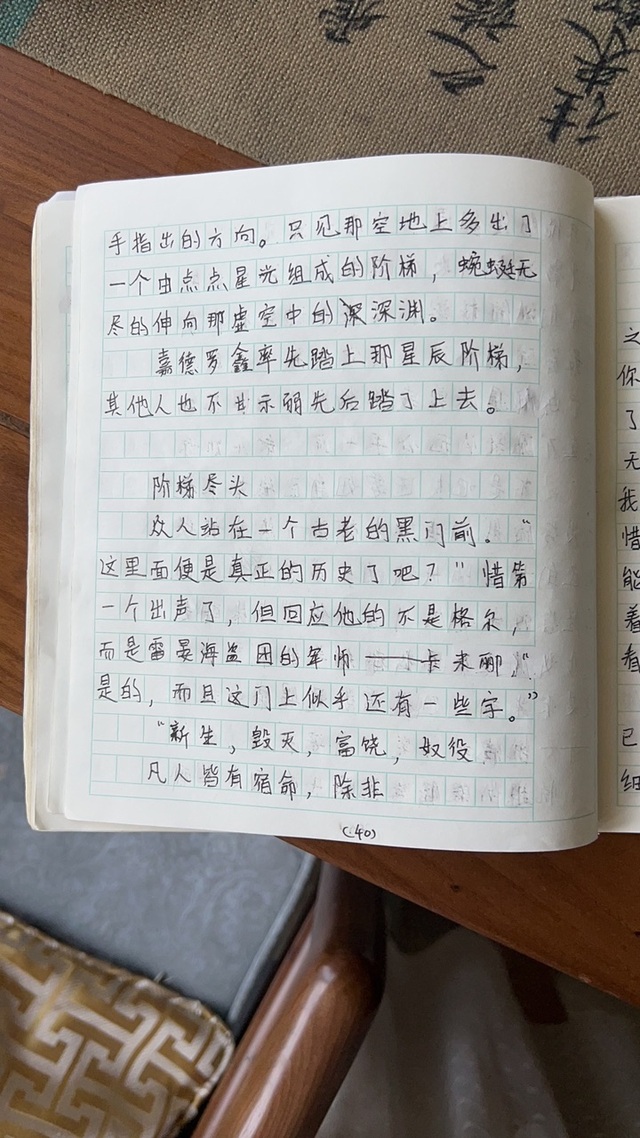 手指出的方向。只见那空地上多出了
一个由点点星光组成的阶梯，蜿蜒无
尽的伸向那虚空中的深渊。
嘉德罗鑫率先踏上那星辰阶梯，
其他人也不甘示弱先后踏了上去。
阶梯尽头
众人站在一个古老的黑门前。“
这里面便是真正的历史了吧？”惜第
一个出声了，但回应他的不是格尔，
而是雷晏海盗团的军师——卡来郦，“
是的，而且这门上似乎还有一些字。”
“新生，毁灭，富饶，奴役
凡人皆有宿命，除非
(40)
之
你
了
无
我
惜
能
着
看
已
细